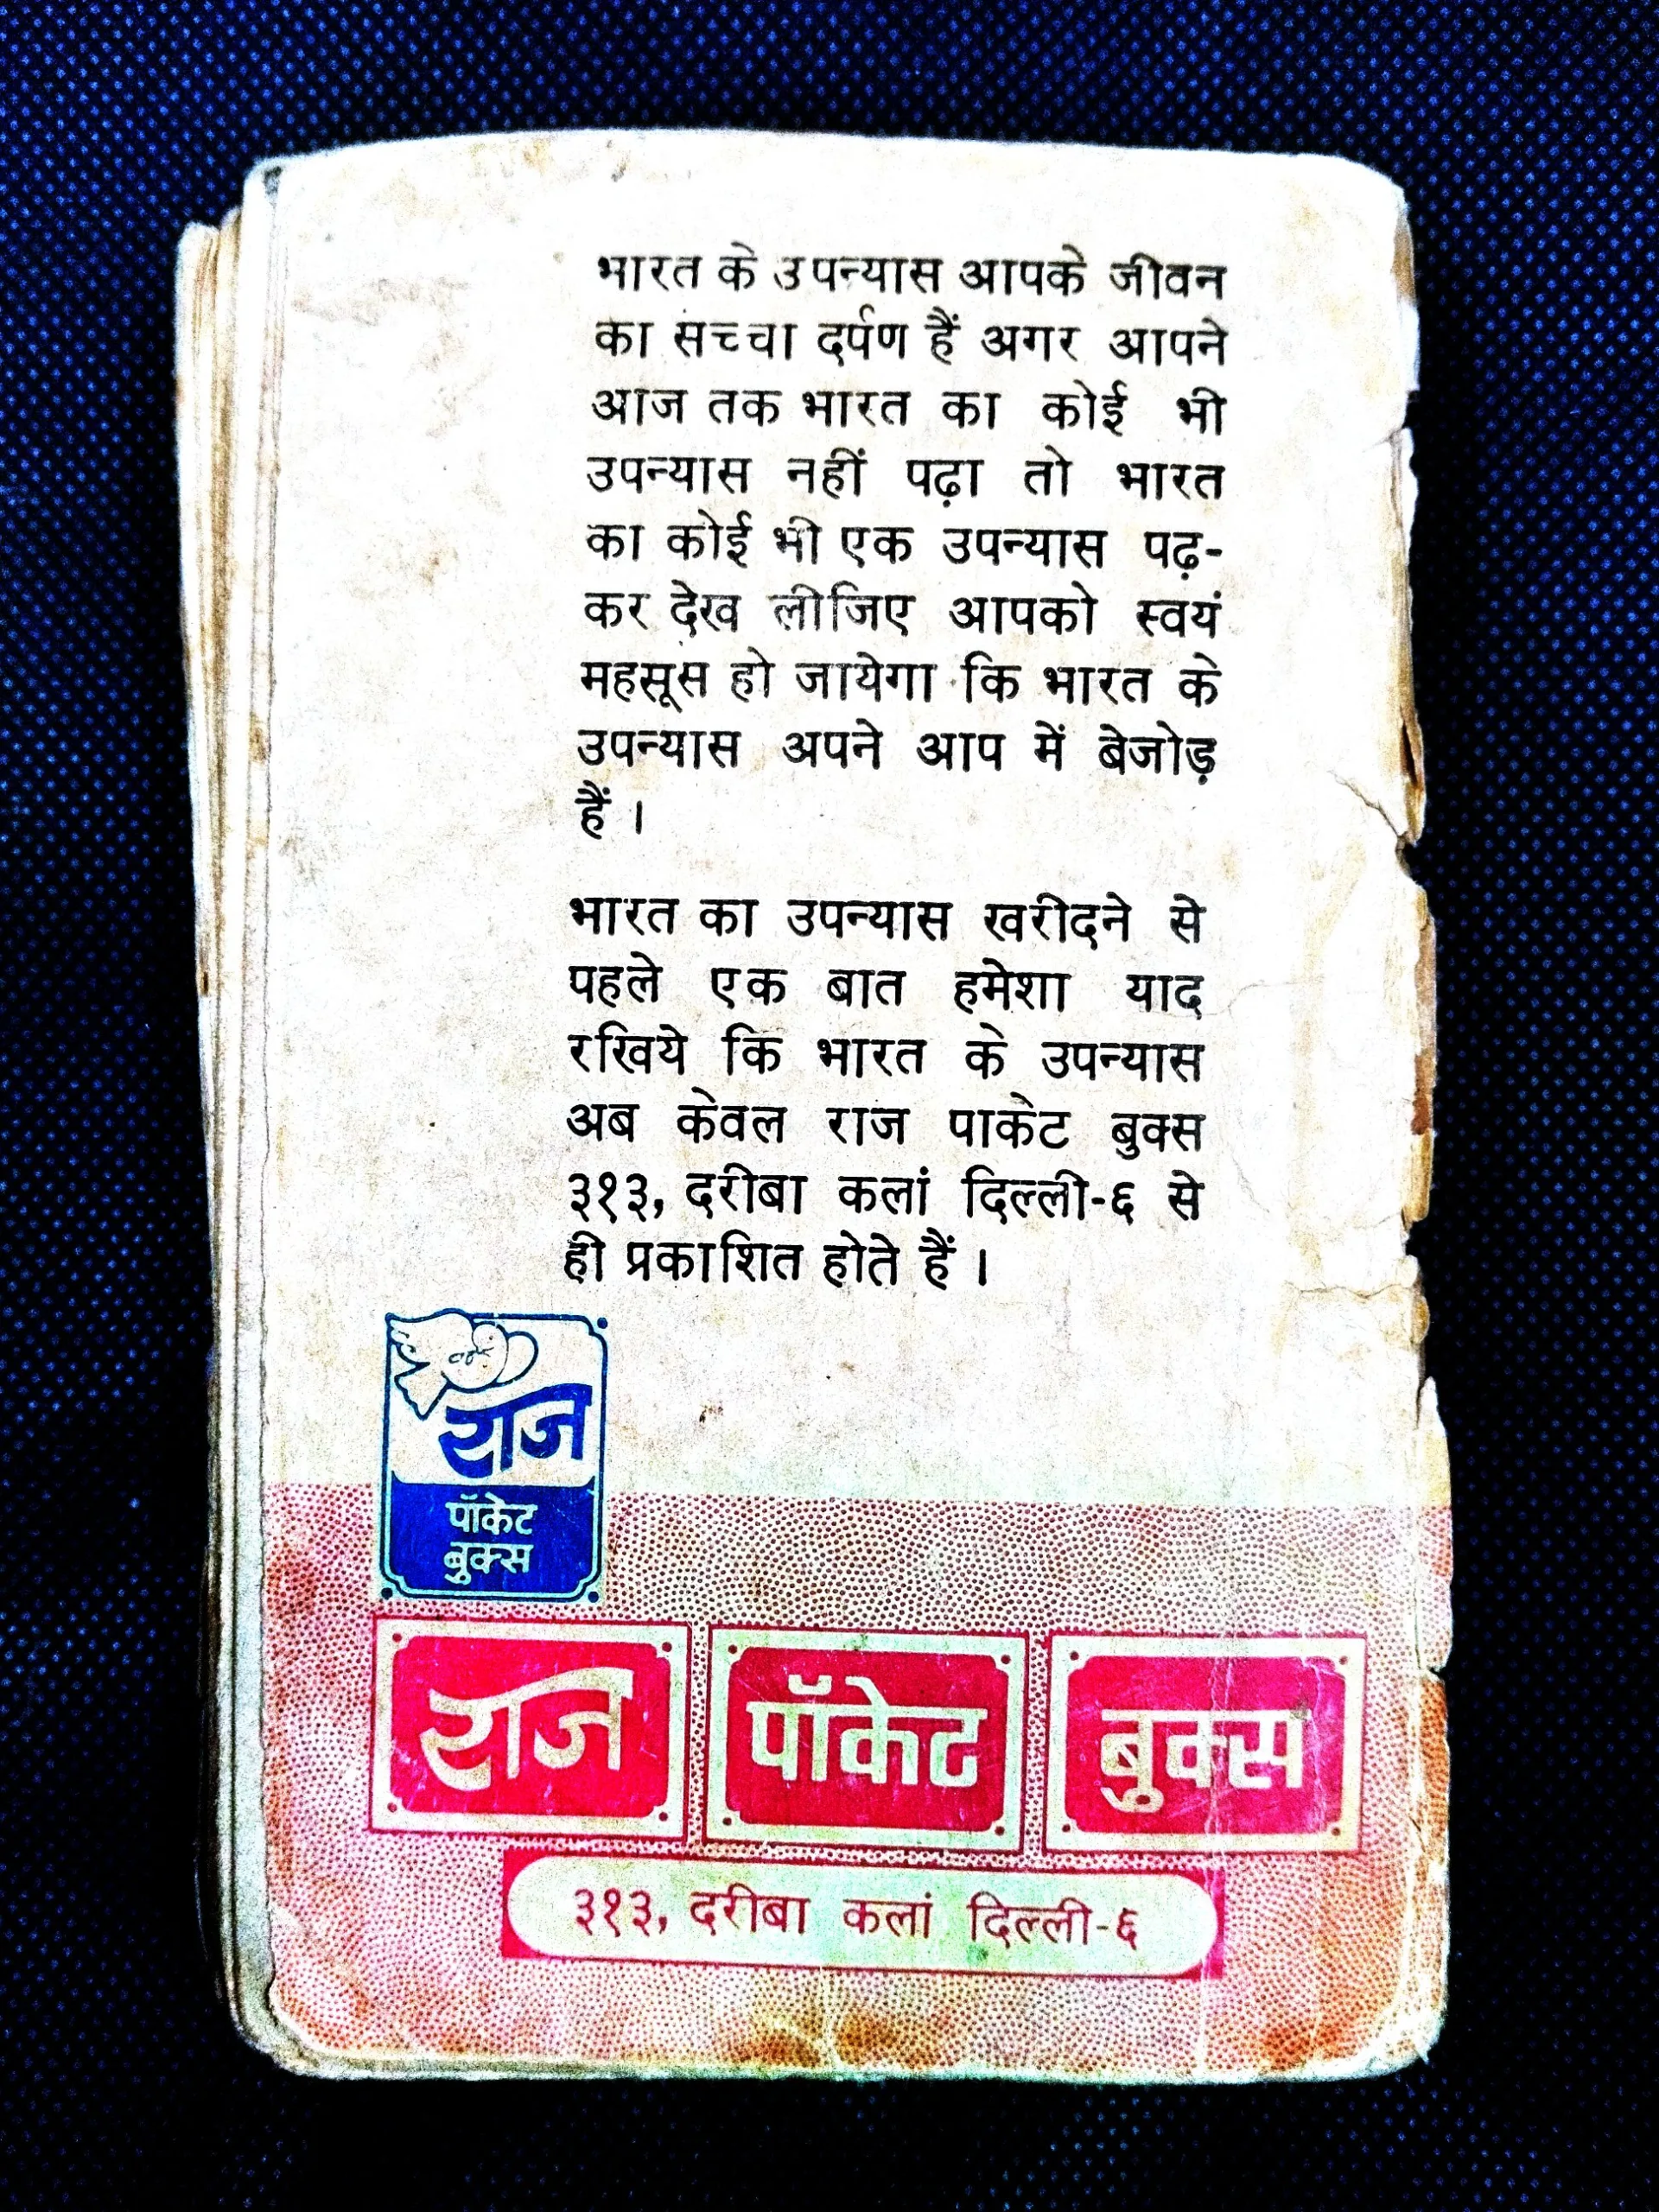 भारत के उपन्यास आपके जीवन
का सच्चा दर्पण हैं अगर आपने
आज तक भारत का कोई भी
उपन्यास नहीं पढ़ा तो भारत
का कोई भी एक उपन्यास पढ़-
कर देख लीजिए आपको स्वयं
महसूस हो जायेगा कि भारत के
उपन्यास अपने आप में बेजोड़
हैं ।
भारत का उपन्यास खरीदने से
पहले एक बात हमेशा याद
रखिये कि भारत के उपन्यास
अब केवल राज पाकेट बुक्स
३१३, दरीबा कलां दिल्ली-६ से
ही प्रकाशित होते हैं ।
राज
पॉकेट
बुक्स
राज पॉकेट बुक्स
३१३, दरीबा कलां दिल्ली-६